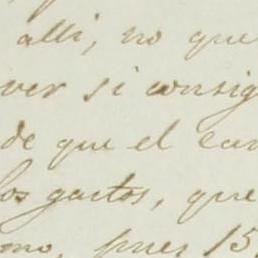 alli, no que
ver si consig
de que el can
los gastos, que
mo, pues 15